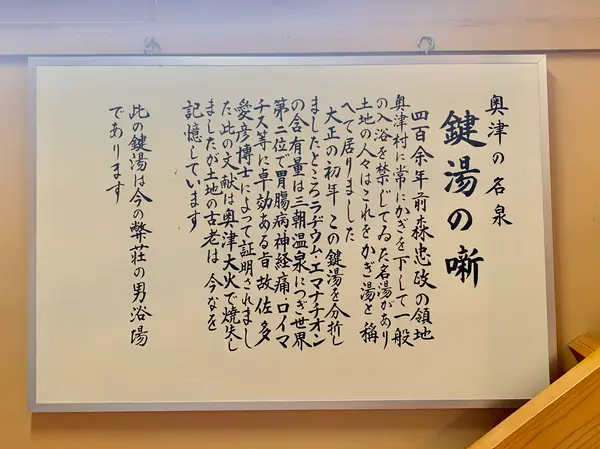 奥津の名泉
鍵湯の噺
四百余年前森忠政の領地
奥津村に常にかぎを下して一般
の入浴を禁じてゐた名湯があり
土地の人々はこれをかぎ湯と稱
へて居りました
大正の初年この鍵湯を分析し
ましたところラデウム・エマナチオン
の含有量は三朝温泉につぎ世界
第二位で胃腸病神経痛・ロイマ
チス等に卓効ある旨故佐多
愛彦博士によって証明されまし
た此の文献は奥津大火で焼失し
ましたが土地の古老は今なを
記憶しています
此の鍵湯は今の弊荘の男浴場
であります